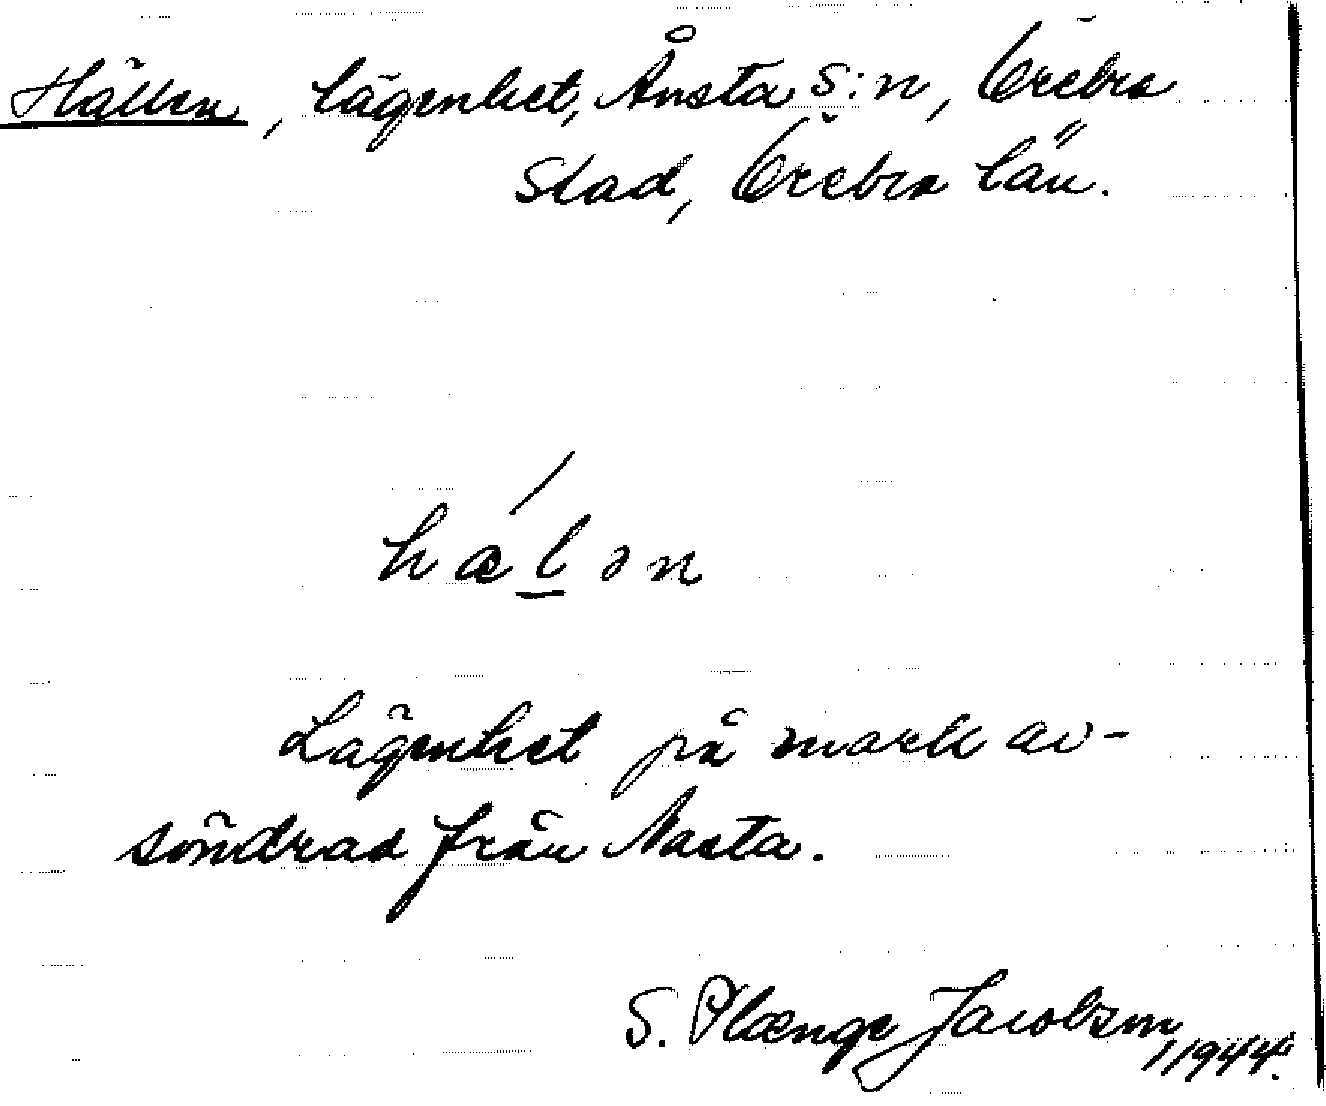 Hällen, lägenhet, Ånsta s:n, Örebro
stad, Örebro län.
hælən
Lägenhet på mark av-
söndrad från Nasta.
S. Plænge Jacobson
1944.